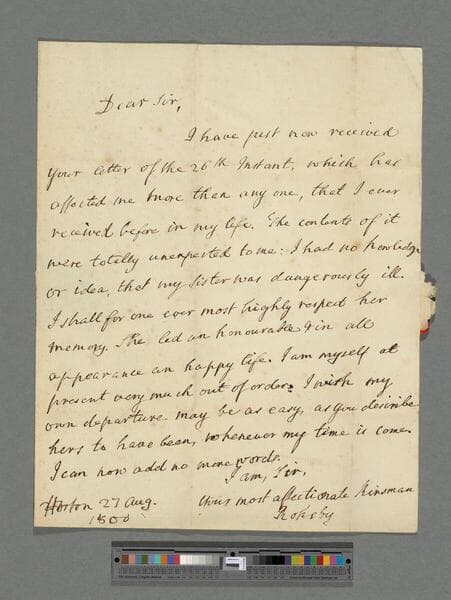 Dear Sir,
I have just now received
your letter of the 26th Instant, which has
affected me more then any one, that I ever
received before in my life. The contents of it
were totally unexpected to me: I had no knowledge
or idea, that my sister was dangerously ill.
I shall for one ever most highly respect her
memory. She led an honourable & in all
appearance an happy life. I am myself at
present very much out of order. I wish my
own departure may be as easy, as you describe
hers to have been, whenever my time is come.
I can now add no more words.
I am, Sir,
Your most affectionate Kinsman
Rokeby
Horton 27 Aug.
1800